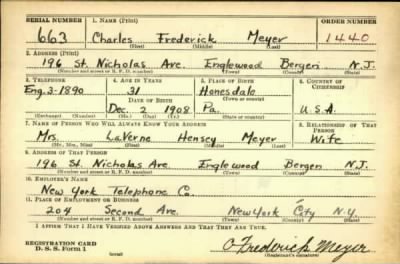 SERIAL NUMBER 1. NAME (Print) ORDER NUMBER
663 Charles Frederick Meyer 1440
(First) (Middle) (Last)
2. ADDRESS (Print)
196 St. Nicholas Ave. Englewood Bergen N.J.
(Number and street or R. F. D. number) (Town) (County) (State)
3. TELEPHONE 4. AGE IN YEARS 5. PLACE OF BIRTH 6. COUNTRY OF CITIZENSHIP
Eng. 3-1890 31 Honesdale
DATE OF BIRTH (Town or county)
Dec. 2 1908 Pa. U.S.A.
(Mo.) (Day) (Yr.) (State or country)
7. NAME OF PERSON WHO WILL ALWAYS KNOW YOUR ADDRESS 8. RELATIONSHIP OF THAT PERSON
Mrs. LaVerne Hensey Meyer Wife
(Mr., Mrs., Miss) (First) (Middle) (Last)
9. ADDRESS OF THAT PERSON
196 St. Nicholas Ave Englewood Bergen N.J.
(Number and street or R. F. D. number) (Town) (County) (State)
10. EMPLOYER'S NAME
New York Telephone Co.
11. PLACE OF EMPLOYMENT OR BUSINESS
204 Second Ave. New York City N.Y.
(Number and street or R. F. D. number) (Town) (County) (State)
I AFFIRM THAT I HAVE VERIFIED ABOVE ANSWERS AND THAT THEY ARE TRUE.
REGISTRATION CARD
D. S. S. Form 1
C Frederick Meyer
(Registrant's signature)